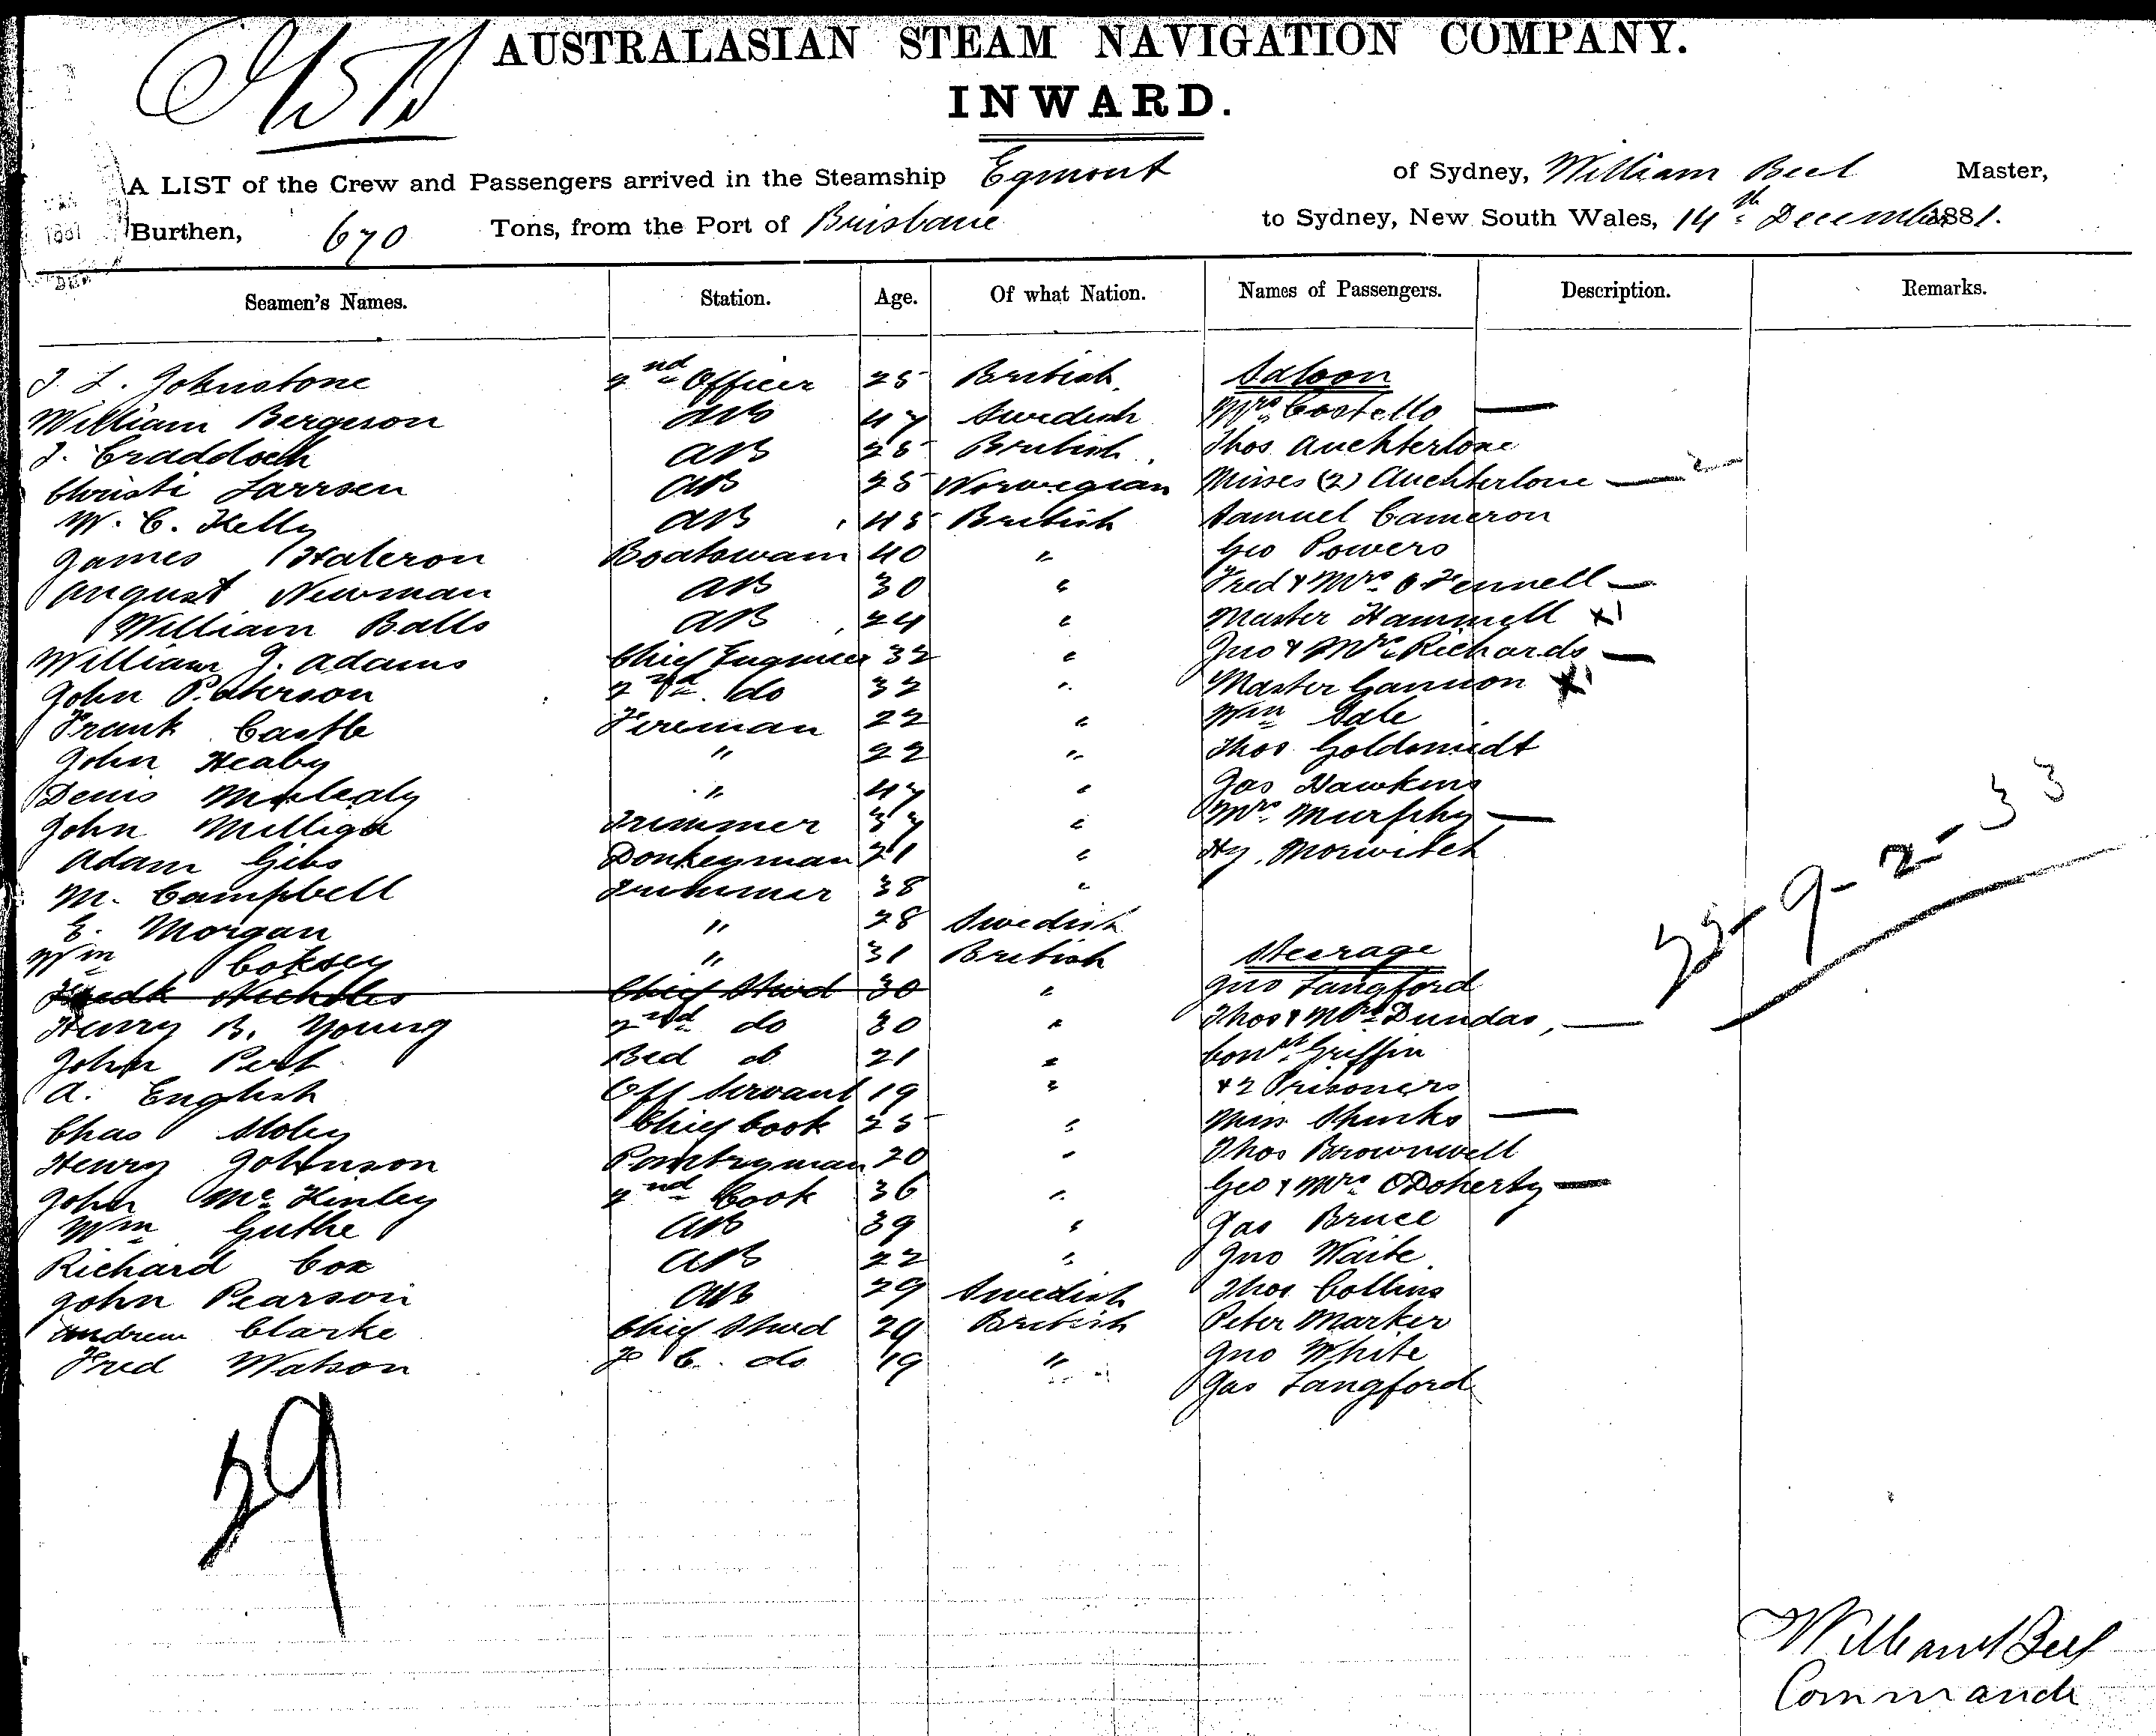 AUSTRALASIAN STEAM NAVIGATION COMPANY.
INWARD.
A LIST of the Crew and Passengers arrived in the Steamship Egmont of Sydney, William Beel Master,
Burthen, 670 Tons, from the Port of Brisbane to Sydney, New South Wales, 14th December 1881.
Seamen's Names. Station. Age. Of what Nation. Names of Passengers. Description. Remarks.
J. L. Johnstone 2nd Officer 25 British Saloon
William Bergeson AB 47 Swedish Mrs Costello —
J. Craddock AB 25 British Thos Auchterlone
Christi Larrsen AB 25 Norwegian Misses (2) Auchterlone — 2
W. C. Kelly AB 45 British Samuel Cameron
James Halcron Boatswain 40 " Geo Powers
August Newman AB 30 " Fred & Mrs O Fennell —
William Balls AB 24 " Master Hammell x1
William J. Adams Chief Engineer 32 " Jno & Mrs Richards —
John Paterson 2nd do 32 " Master Gannon x1
Frank Castle Fireman 22 " Wm Sale
John Heaby " 22 " Thos Goldsmidt
Denis " 47 " Jas Hawkins
John Milligan Trimmer 37 " Mrs Murphy —
Adam Gibs Donkeyman 21 " Hy. Morwitch
M. Campbell Trimmer 38 "
E. Morgan " 28 Swedish
Wm Coksey " 31 British Steerage
Fredk Nicholes Chief Stwd 30 " Jno Langford
Henry B. Young 2nd do 30 " Thos & Mrs Dundas, —
John Pert Bed do 21 " Const Griffin
A. English Off Servant 19 " & 2 Prisoners
Chas Stoley Chief Cook 25 " Miss Shurks —
Henry Johnson Pantryman 20 " Thos Brownwell
John McKinley 2nd Cook 36 " Geo & Mrs ODoherty —
Wm Guthe AB 39 " Jas Bruce
Richard Cox AB 22 " Jno Waite
John Pearson AB 29 Swedish Thos Collins
Andrew Clarke Chief Stwd 29 British Peter Marker
Fred Watson F. C. do 19 " Jno White
Jas Langford
29
9-2-33
William Beel
Commander